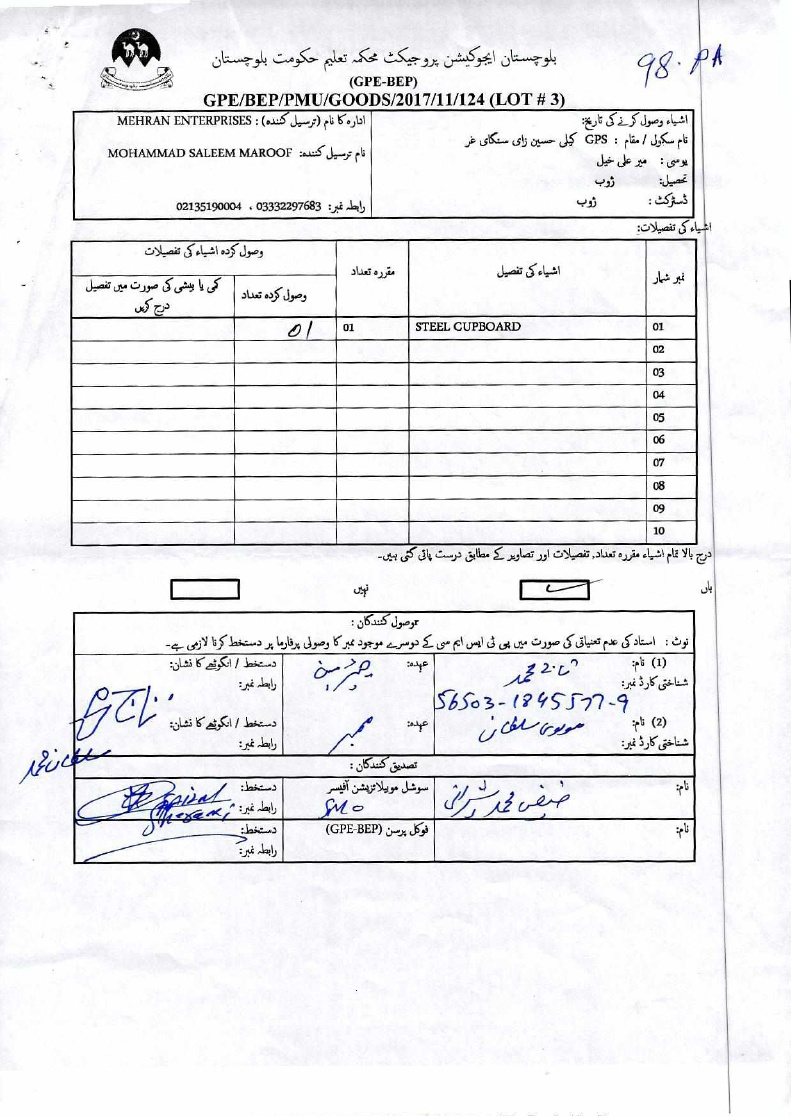 بلوچستان ایجوکیشن پروجیکٹ محکمہ تعلیم حکومت بلوچستان
98. PA
(GPE-BEP)
GPE/BEP/PMU/GOODS/2017/11/124 (LOT # 3)
اشیاء وصول کرنے کی تاریخ:
نام سکول / مقام : GPS کیلی حسین زای سنگای غر
یوسی : میر علی خیل
تحصیل: ژوب
ڈسٹرکٹ : ژوب
ادارہ کا نام (ترسیل کنندہ) : MEHRAN ENTERPRISES
نام ترسیل کنندہ: MOHAMMAD SALEEM MAROOF
رابطہ نمبر: 03332297683 ، 02135190004
اشیاء کی تفصیلات:
نمبر شمار
اشیاء کی تفصیل
مقررہ تعداد
وصول کردہ اشیاء کی تفصیلات
وصول کردہ تعداد
کمی یا بیشی کی صورت میں تفصیل درج کریں
01 STEEL CUPBOARD 01 01
02
03
04
05
06
07
08
09
10
درج بالا تمام اشیاء مقررہ تعداد, تفصیلات اور تصاویر کے مطابق درست پائی گئی ہیں۔
ہاں ✓ نہیں
وصول کنندگان :
نوٹ : استاد کی عدم تعیناتی کی صورت میں پی ٹی ایس ایم سی کے دوسرے موجود ممبر کا وصولی پرفارما پر دستخط کرنا لازمی ہے۔
(1) نام:
عہدہ: چیئرمین
دستخط / انگوٹھے کا نشان:
شناختی کارڈ نمبر: 56503-1845577-9
رابطہ نمبر:
(2) نام: مولوی سلطان
عہدہ: ممبر
دستخط / انگوٹھے کا نشان:
شناختی کارڈ نمبر:
رابطہ نمبر:
تصدیق کنندگان :
نام:
سوشل موبیلائزیشن آفیسر
SMO
دستخط:
رابطہ نمبر:
نام:
فوکل پرسن (GPE-BEP)
دستخط:
رابطہ نمبر: